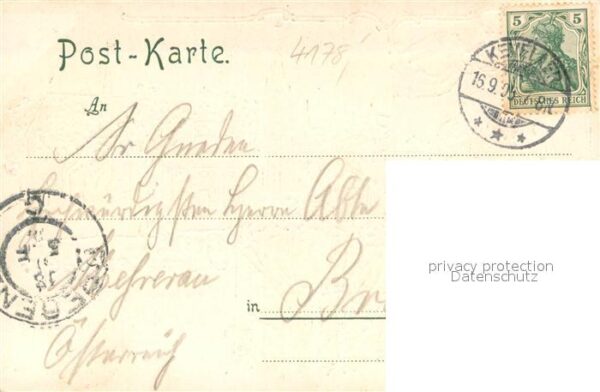 Post-Karte.
4178
5 5
DEUTSCHES REICH
KEVELAER
16.9.05
An
Sr Gnaden
Hochwürdigsten Herrn Abte
Mehrerau
in Br
Österreich
privacy protection
Datenschutz